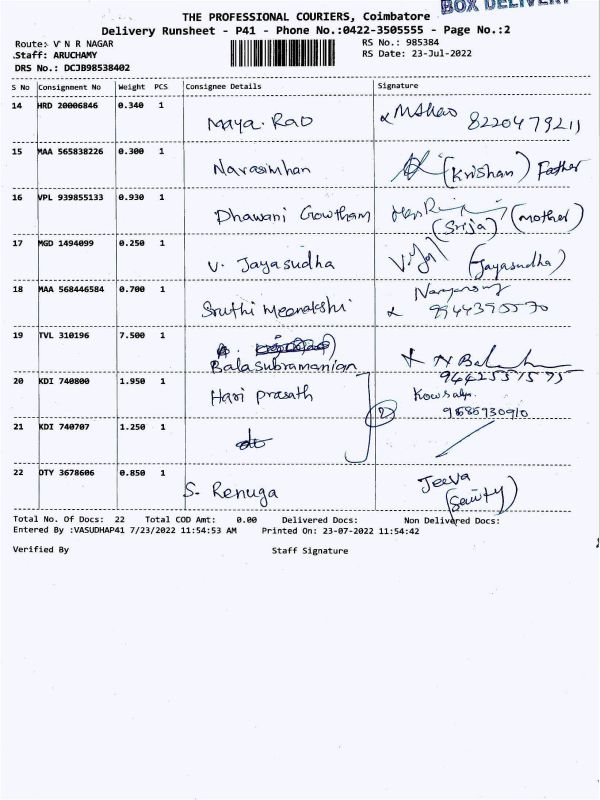 BOX DELIVERY
THE PROFESSIONAL COURIERS, Coimbatore
Delivery Runsheet - P41 - Phone No.:0422-3505555 - Page No.:2
Route: V N R NAGAR
RS No.: 985384
Staff: ARUCHAMY
RS Date: 23-Jul-2022
DRS No.: DCJB98538402
S No Consignment No Weight PCS Consignee Details Signature
14 HRD 20006846 0.340 1 Maya. Rao 8220479211
15 MAA 565838226 0.300 1 Narasimhan (Krishan) Father
16 VPL 939855133 0.930 1 Dhawani Gowtham (Srija) (mother)
17 MGD 1494099 0.250 1 V. Jayasudha (Jayasudha)
18 MAA 568446584 0.700 1 Sruthi Meenakshi
19 TVL 310196 7.500 1 Balasubramanian
20 KDI 740800 1.950 1 Hari prasath
2
21 KDI 740707 1.250 1
22 DTY 3678606 0.850 1 S. Renuga Jeeva
Total No. Of Docs: 22 Total COD Amt: 0.00 Delivered Docs: Non Delivered Docs:
Entered By :VASUDHAP41 7/23/2022 11:54:53 AM Printed On: 23-07-2022 11:54:42
Verified By Staff Signature